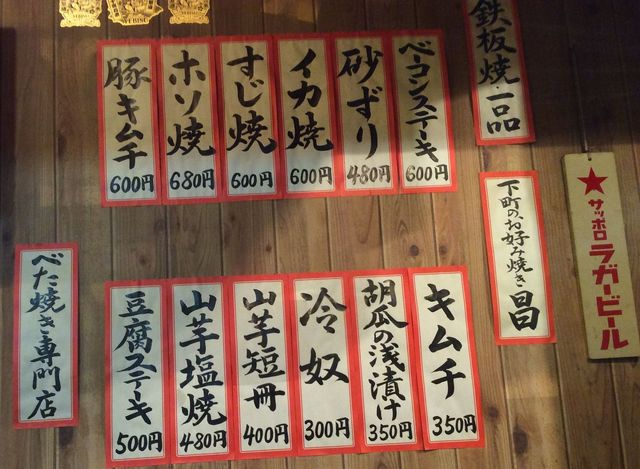 鉄板焼・一品
ベーコンステーキ
600円
砂ずり
480円
イカ焼
600円
すじ焼
600円
ホソ焼
680円
豚キムチ
600円
下町のお好み焼き 昌
★サッポロラガービール
キムチ
350円
胡瓜の浅漬け
350円
冷奴
300円
山芋短冊
400円
山芋塩焼
480円
豆腐ステーキ
500円
べた焼き専門店